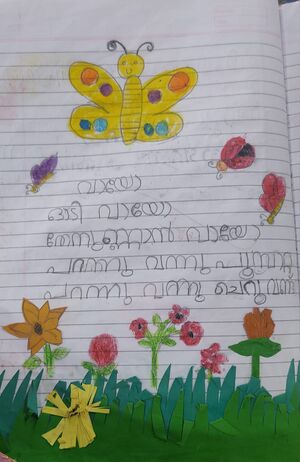 വായോ
ഓടി വായോ
തേനുണ്ണാൻ വായോ
പറന്നു വന്നു
പറന്നു വന്നു ചെറു